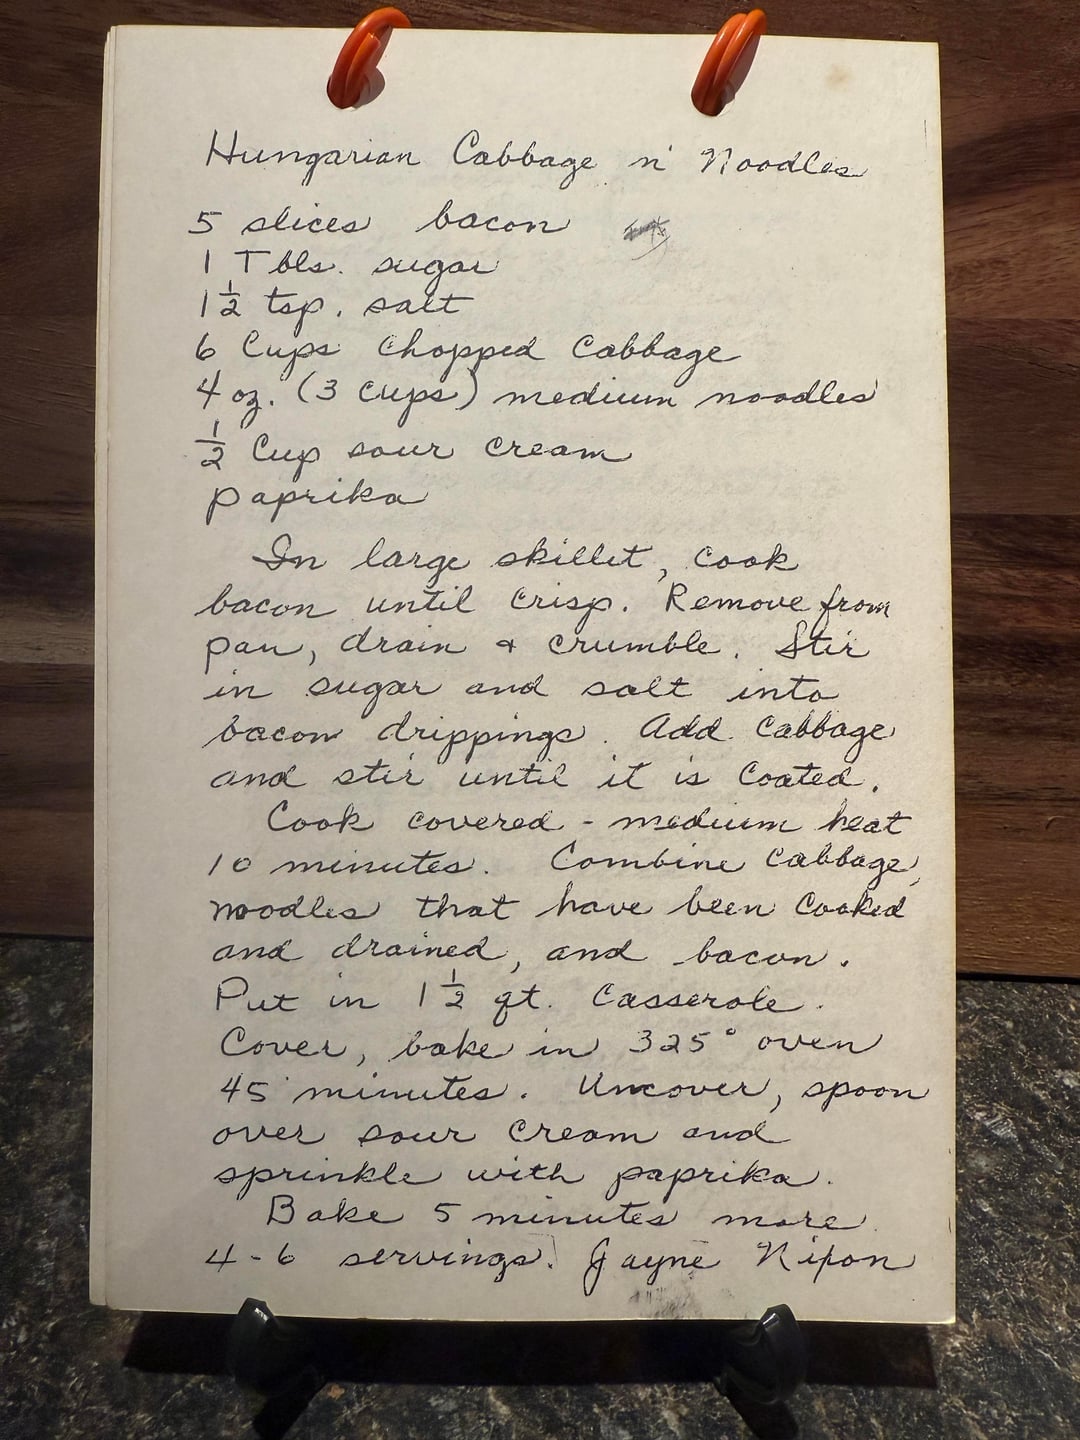 Hungarian Cabbage n' Noodles
5 slices bacon
1 Tbls. sugar
1 1/2 tsp. salt
6 Cups Chopped Cabbage
4 oz. (3 Cups) medium noodles
1/2 Cup sour cream
paprika
In large skillet, cook
bacon until crisp. Remove from
pan, drain & crumble. Stir
in sugar and salt into
bacon drippings. Add Cabbage
and stir until it is Coated.
Cook covered - medium heat
10 minutes. Combine Cabbage,
noodles that have been Cooked
and drained, and bacon.
Put in 1 1/2 qt. Casserole.
Cover, bake in 325° oven
45 minutes. Uncover, spoon
over sour cream and
sprinkle with paprika.
Bake 5 minutes more
4-6 servings. Jayne